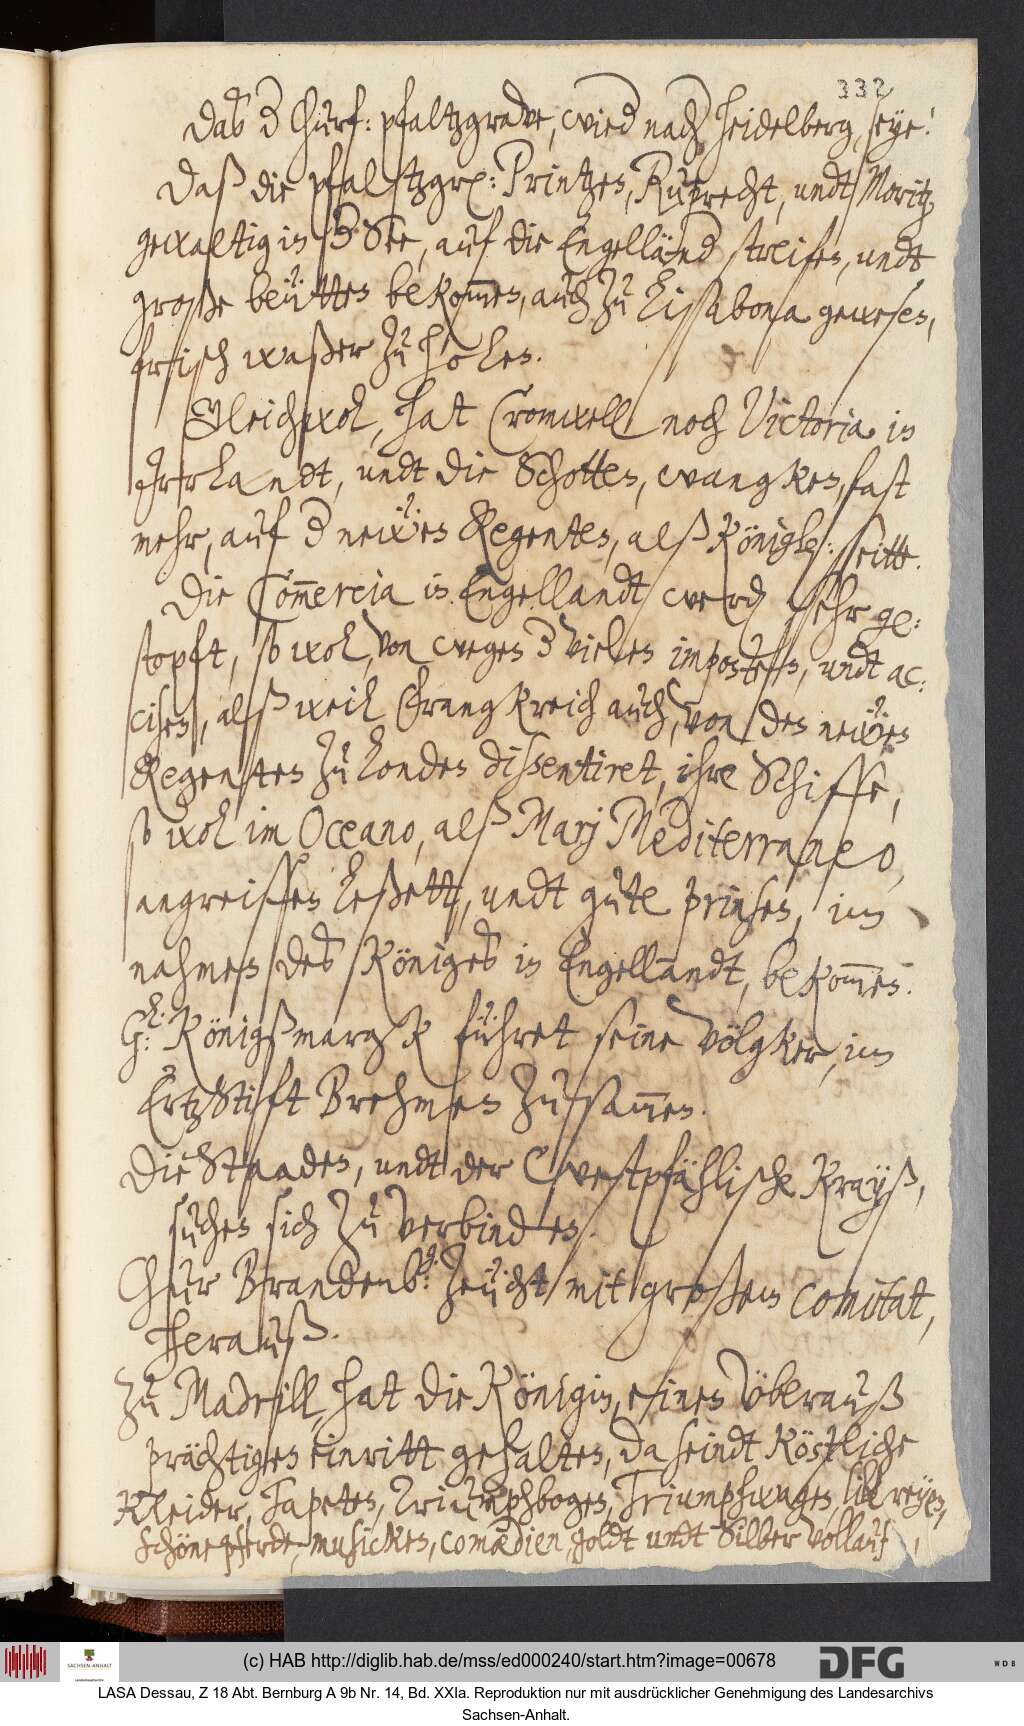 332
Das d Churf: pfaltzgrave, wied nach Heidelberg, seye!
Daß die pfalstzgr: Printzen, Ruprecht, undt Moritz
gewaltig in d See, auf die Engelländ streifen, undt
große beütten bekom̄en, auch zu Lissabona gewesen,
frisch waßer zu holen.
Gleichwol, hat Cromwell noch Victoria in
Irrlandt, undt die Schotten, wangken, fast
mehr, auf d neẅen Regenten, alß Königl: seitte.
Die Com̄ercia in Engellandt werd sehr ge:
stopft, so wol, von wegen d vielen imposten, undt ac:
cisen, alß weil Frangkreich auch, von den neẅen
Regenten zu Londen dissentiret, ihre Schiffe,
so wol im Oceano, alß Marj Mediterraneo,
angreiffen leßett, undt gute prinsen, im
nahmen des Königes in Engellandt, bekom̄en.
G: Königßmargk führet seine völgker, im
Ertzstifft Brehmen zusam̄en.
Die Staaden, undt der Westpfählische Krayß,
suchen sich zu verbinden.
Chur Brandenb: zeücht mit großem comitat,
heranß.
Zu Madrill, hat die Königin, einen überauß
prächtigen einritt gehalten, da seindt köstliche
Kleider, Tapeten, Triumphbogen, Triumphwagen, libreyen,
schöne pferde, musicken, comœdien, goldt undt Silber vollauf,
(c) HAB http://diglib.hab.de/mss/ed000240/start.htm?image=00678
SACHSEN-ANHALT
DFG
WDB
LASA Dessau, Z 18 Abt. Bernburg A 9b Nr. 14, Bd. XXIa. Reproduktion nur mit ausdrücklicher Genehmigung des Landesarchivs
Sachsen-Anhalt.